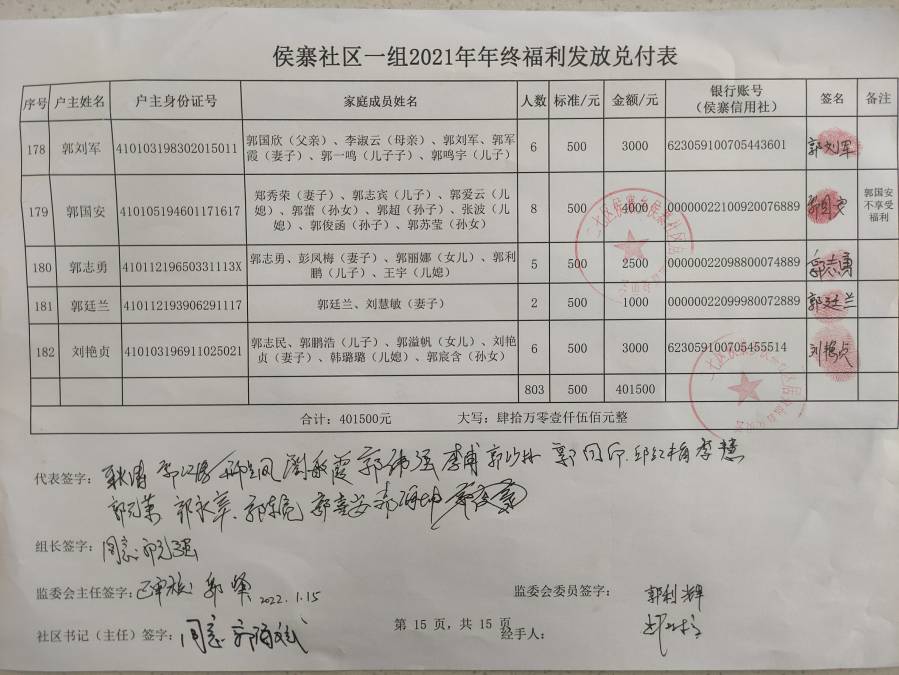 侯寨社区一组2021年年终福利发放兑付表
序号 户主姓名 户主身份证号 家庭成员姓名 人数 标准/元 金额/元 银行账号 签名 备注
（侯寨信用社）
178 郭刘军 410103198302015011 郭国欣（父亲）、李淑云（母亲）、郭刘军、郭军 6 500 3000 623059100705443601 郭刘军
霞（妻子）、郭一鸣（儿子子）、郭鸣宇（儿子）
179 郭国安 410105194601171617 郑秀荣（妻子）、郭志宾（儿子）、郭爱云（儿 8 500 4000 00000022100920076889 郭国安 郭国安
媳）、郭蕾（孙女）、郭超（孙子）、张波（儿 不享受
媳）、郭俊函（孙子）、郭苏莹（孙女） 福利
180 郭志勇 41011219650331113X 郭志勇、彭凤梅（妻子）、郭丽娜（女儿）、郭利 5 500 2500 00000022098800074889 郭志勇
鹏（儿子）、王宇（儿媳）
181 郭廷兰 410112193906291117 郭廷兰、刘慧敏（妻子） 2 500 1000 00000022099980072889 郭廷兰
182 刘艳贞 410103196911025021 郭志民、郭鹏浩（儿子）、郭溢帆（女儿）、刘艳 6 500 3000 623059100705455514 刘艳贞
贞（妻子）、韩璐璐（儿媳）、郭宸含（孙女）
803 500 401500
合计：401500元 大写：肆拾万零壹仟伍佰元整
代表签字： 刘敏霞 郭伟强 李慧
组长签字：同意
监委会主任签字： 2022.1.15 监委会委员签字： 郭利辉
社区书记（主任）签字：同意 第 15 页，共 15 页 经手人：